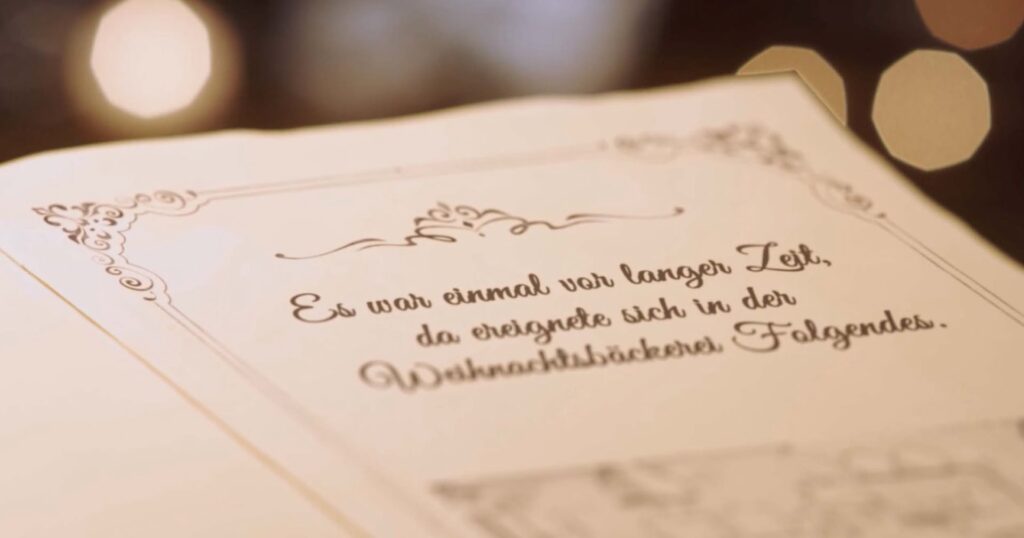 Es war einmal vor langer Zeit,
da ereignete sich in der
Weihnachtsbäckerei Folgendes.